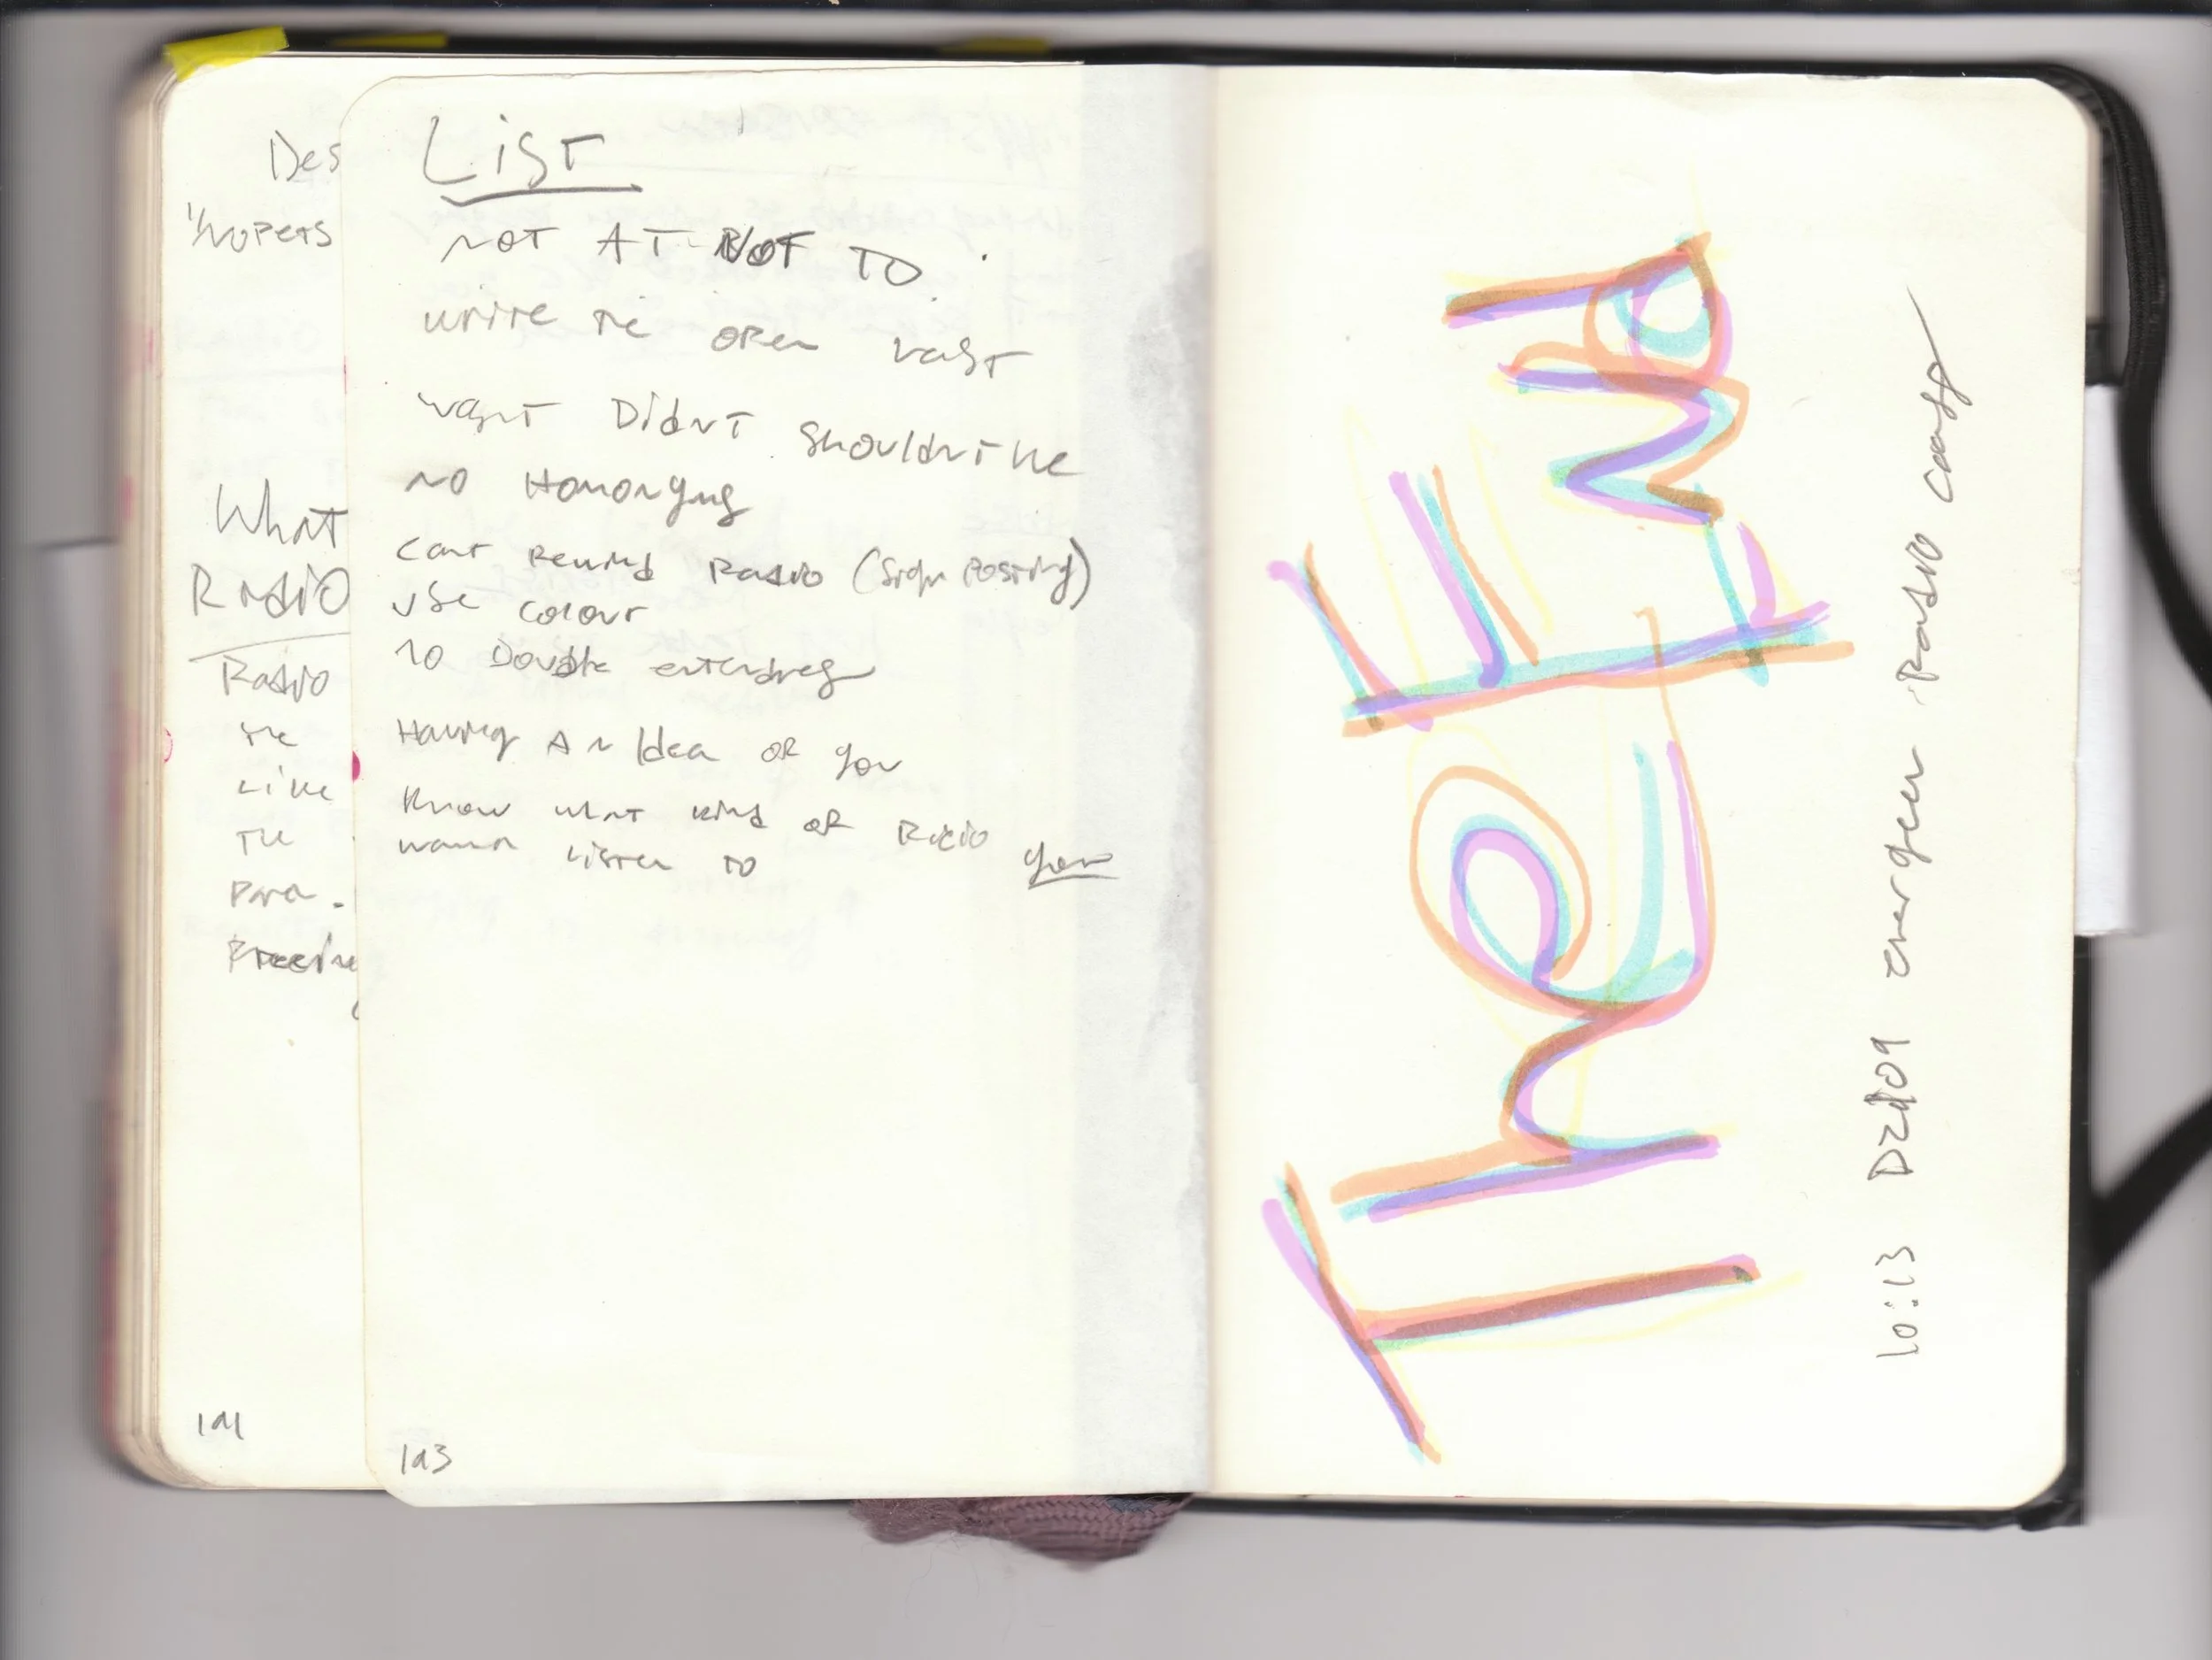 Des
What
Radio
Radio
the
Live
the
Para.
List
NOT AT BUT TO.
write the open vast
want Didnt shouldnt he
no Homonyms
cant rewind Radio (Sign Posting)
use colour
no Double entendres
Having An Idea of you
Know what kind of Radio you
wanna Listen to
193
The End
10:13 energen Radio